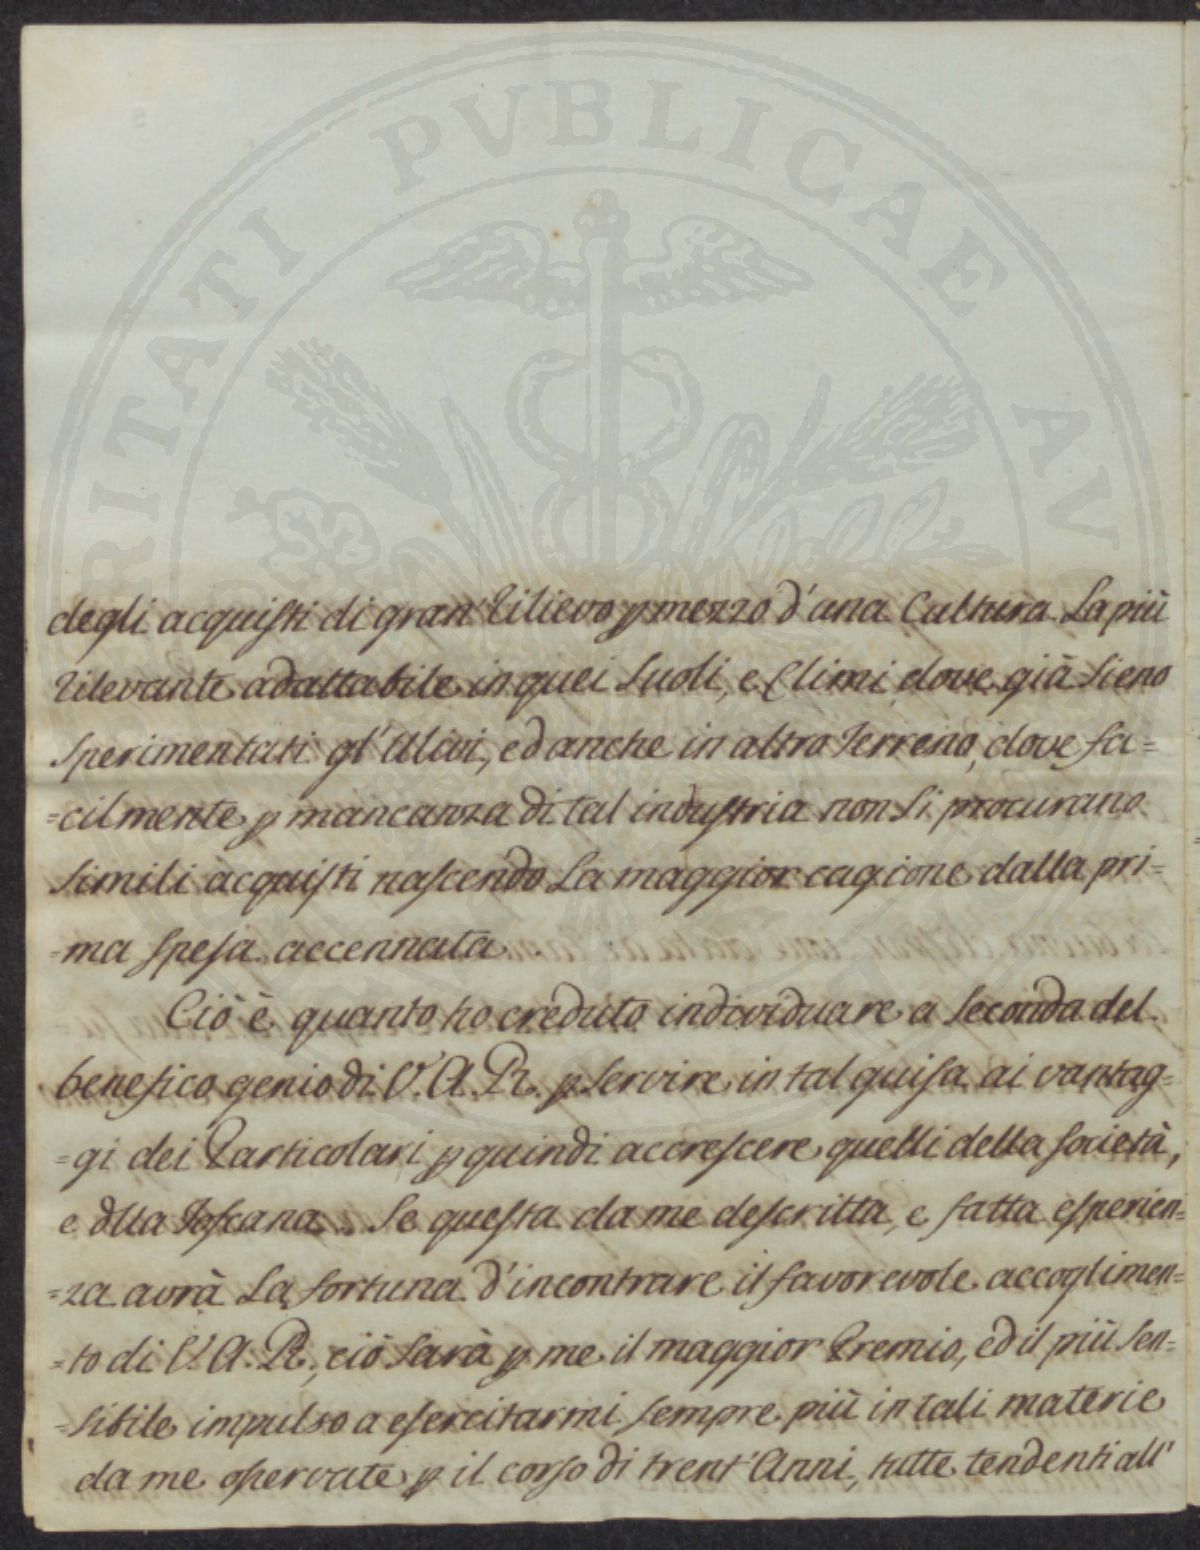 PVBLICAE
RITATI
AVC
degli acquisti di gran' rilievo p mezzo d'una Cultura La più
rilevante adattabile in quei Suoli, e Climi, dove già Sieno
Sperimentati gl'Ulivi, ed anche in altro Terreno, dove fa=
=cilmente p mancanza di tal industria non Si procurano
Simili acquisti nascendo La maggior cagione dalla pri=
=ma spesa accennata
Ciò è quanto ho creduto individuare a Seconda del
benefico genio di V. A. R. p Servire in tal guisa ai vantag=
=gi dei Particolari p quindi accrescere quelli della Società,
e dlla Toscana. Se questa da me descritta, e fatta esperien=
=za avrà La fortuna d'incontrare il favorevole accoglimen=
=to di V. A. R., ciò Sarà p me il maggior Premio, ed il più Sen=
=Sibile impulso a esercitarmi sempre più in tali materie
da me osservate p il corso di trent'Anni, tutte tendenti all'